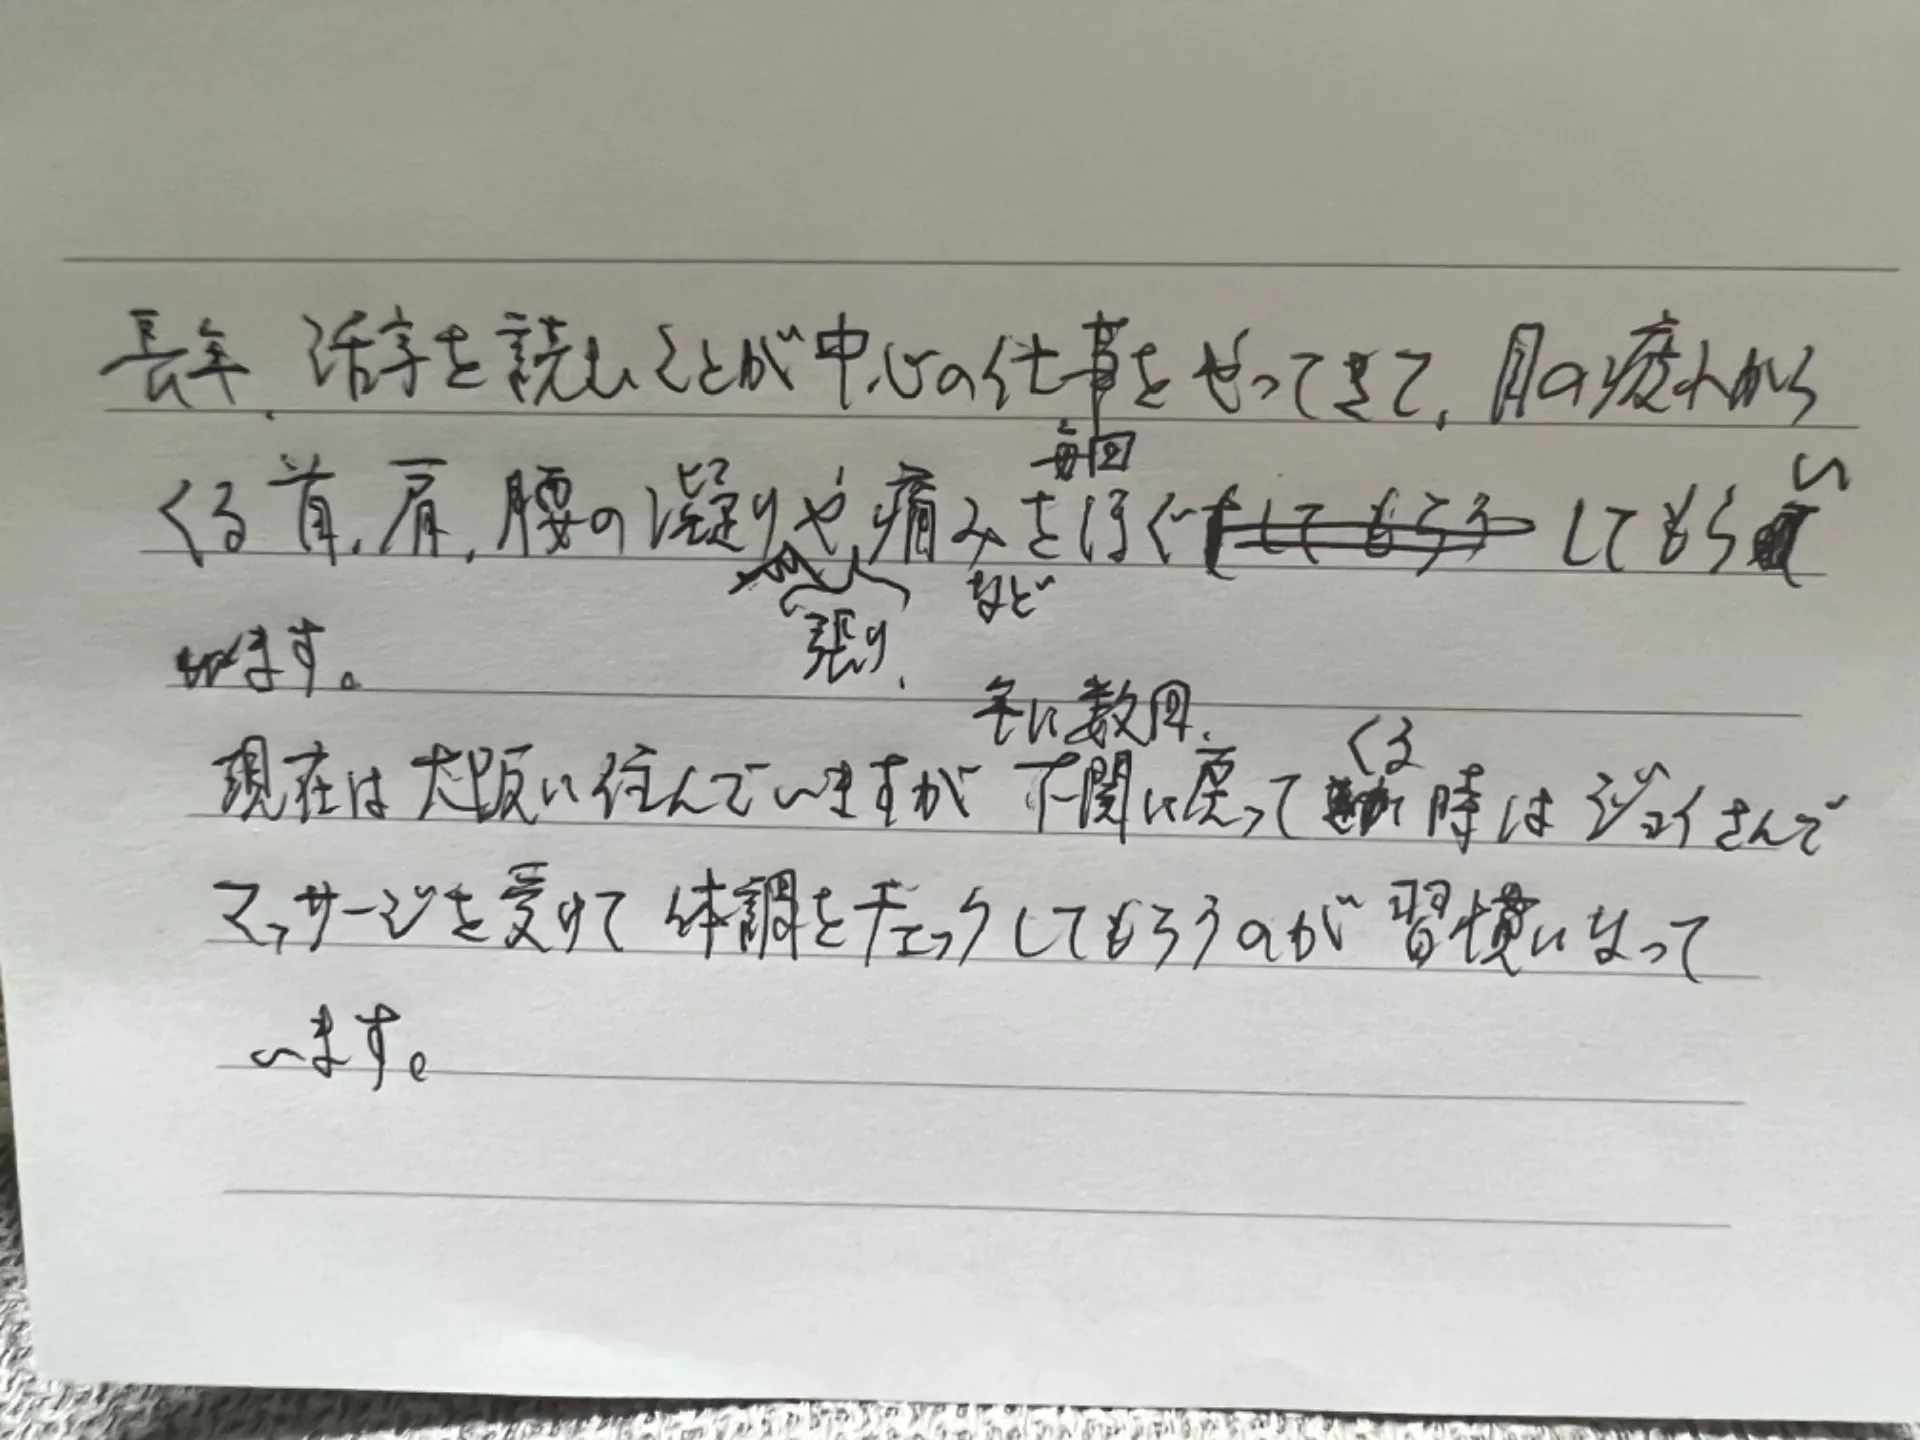 長年、活字を読むことが中心の仕事をやってきて、目の疲れから
毎回
い
くる首、肩、腰の凝りや痛みをほぐしてもらうしてもら
など
張り、
います。
年に数回、
くる
現在は大阪に住んでいますが下関に戻って時はジョイさんで
マッサージを受けて体調をチェックしてもらうのが習慣になって
います。